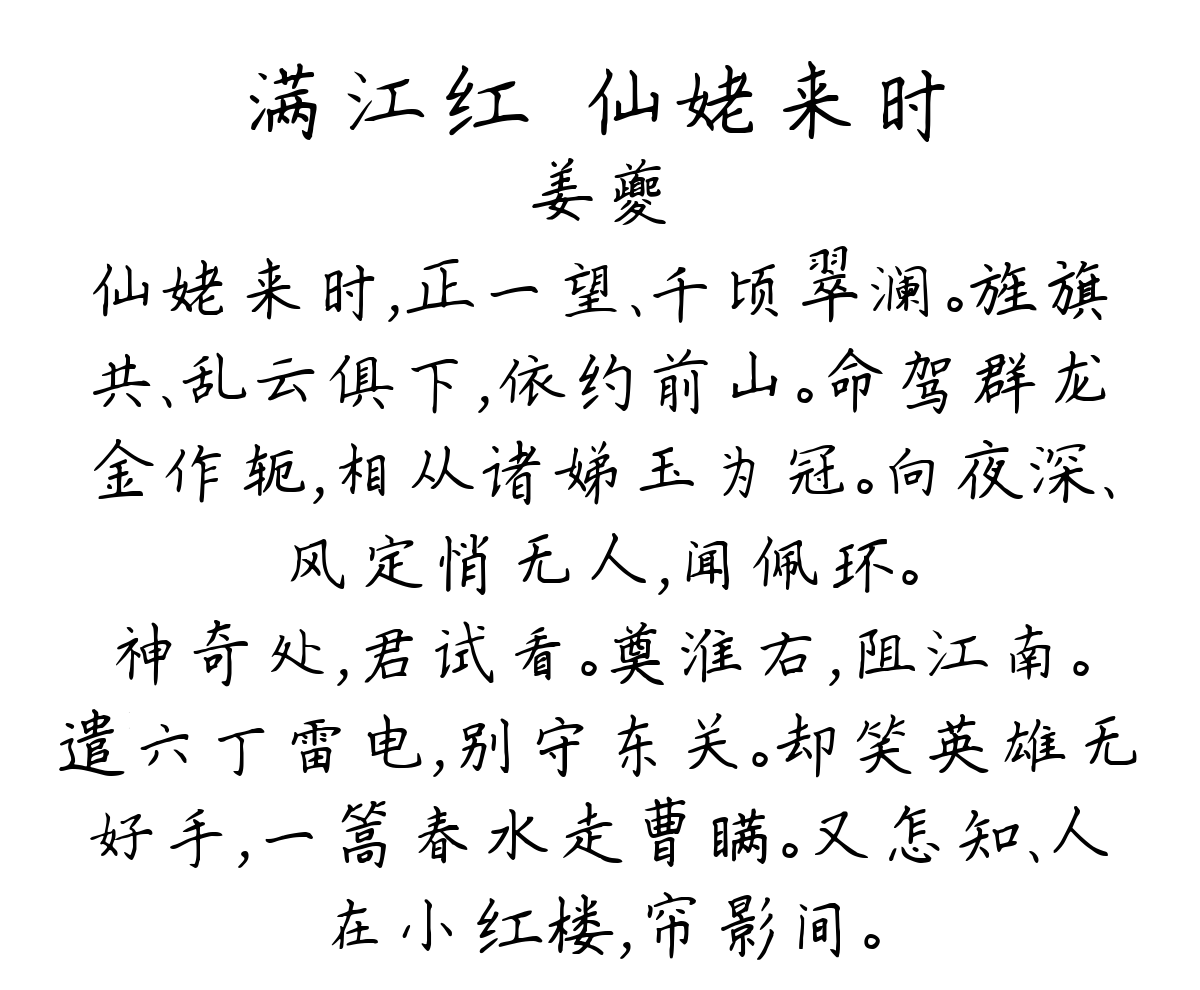 满江红 仙姥来时
姜夔
仙姥来时,正一望、千顷翠澜。旌旗
共、乱云俱下,依约前山。命驾群龙
金作轭,相从诸娣玉为冠。向夜深、
风定悄无人,闻佩环。
神奇处,君试看。奠淮右,阻江南。
遣六丁雷电,别守东关。却笑英雄无
好手,一篙春水走曹瞒。又怎知、人
在小红楼,帘影间。